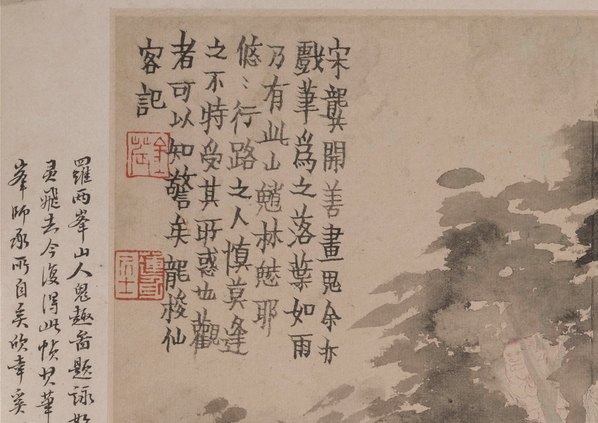 宋龔開善畫鬼余亦
戲筆為之落葉如雨
乃有此山魈林魅耶
悠〻行路之人慎莫逢
之不特受其所惑也觀
者可以知警矣龍梭仙
客記
羅兩峯山人鬼趣啚題詠
飛去今復得此幀
峯師承所自矣欣幸奚